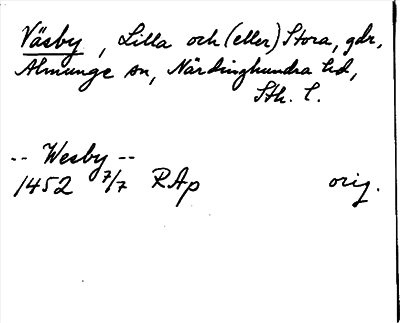 Väsby, Lilla och (eller) Stora, gdr,
Almunge sn, Närdinghundra hd,
Sth. l.
-- Wesby --
1452 7/7 RAp orig.